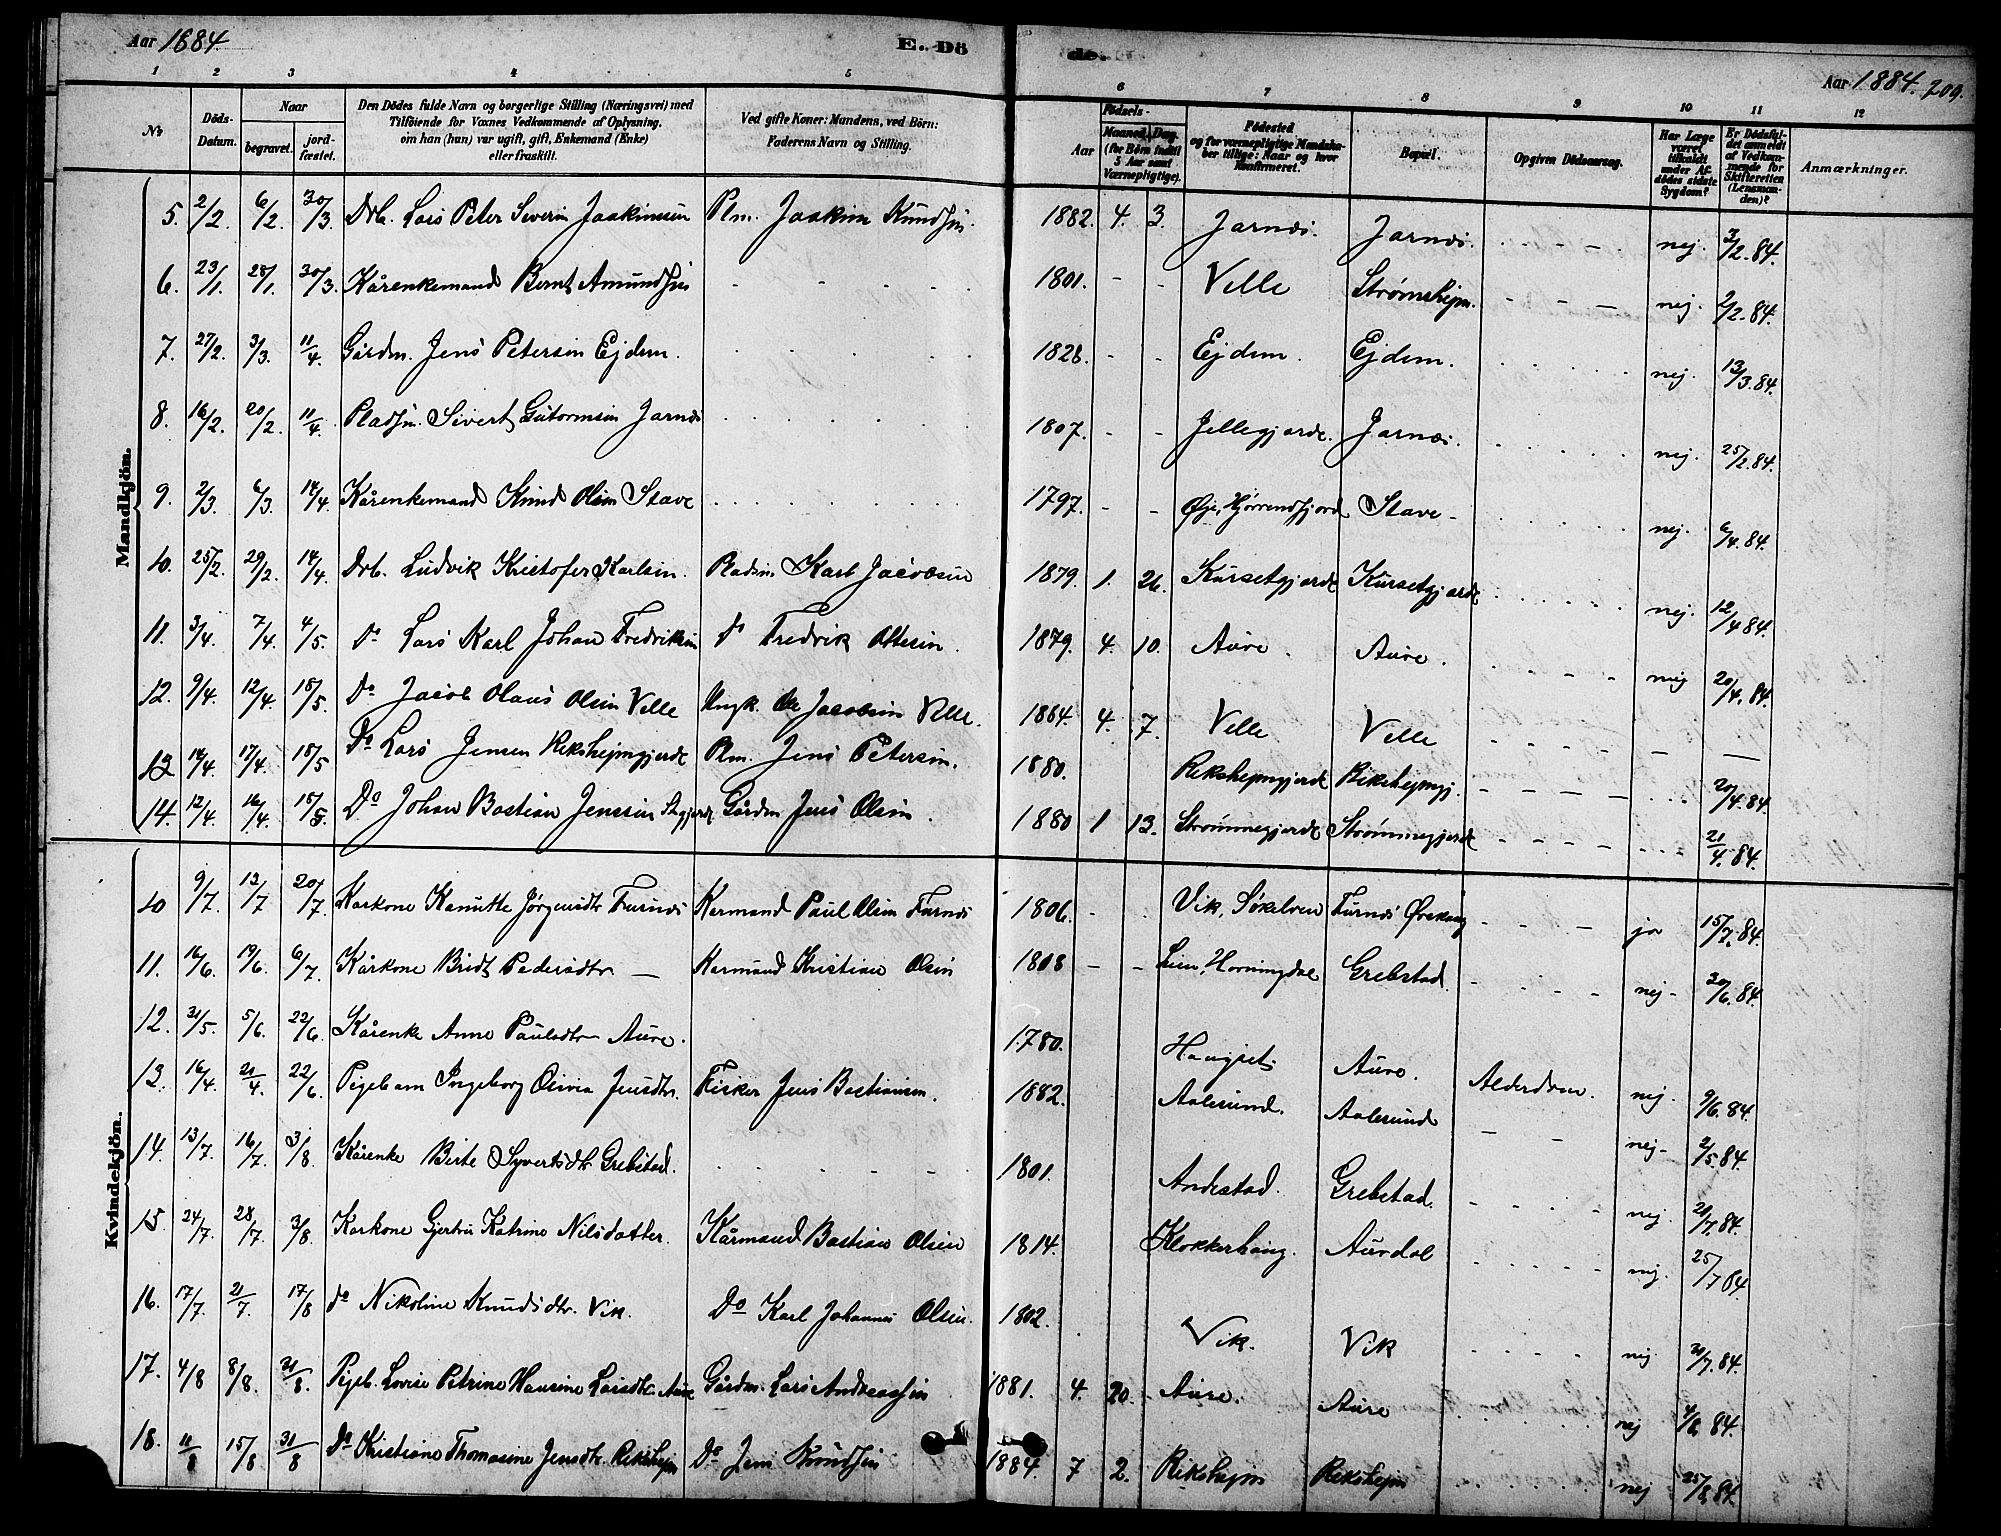 Aar 1884. E. Dö
de. Aar 1884. 209.
1 2 3 4 5 6 7 8 9 10 11 12
No Döds-Datum. Naar begravet. jordfæstet. Den Dödes fulde Navn og borgerlige Stilling (Næringsvei) med Tilföiende for Voxnes Vedkommende af Oplysning, om han (hun) var ugift, gift, Enkemand (Enke) eller fraskilt. Ved gifte Koner: Mandens, ved Börn: Faderens Navn og Stilling. Födsels- Aar Maaned, Dag. (for Börn indtil 5 Aar samt Værnepligtige). Födested og for værnepligtige Mandskaber tillige: Naar og hvor Konfirmeret. Bopæl. Opgiven Dödsaarsag. Har Læge været tilkaldt under Afdödes sidste Sygdom? Er Dödsfaldet anmeldt af Vedkommende for Skifteretten (Lensmanden)? Anmærkninger.
Mandkjön.
5. 2/2. 6/2. 30/3. Drb. Lars Peter Severin Joakimsen Plm. Joakim Knudsen. 1882. 4. 3. Jarnes. Jarnes. nej. 3/2.84.
6. 23/1. 28/1. 30/3. Kårenkemand Bernt Amundsen 1801. - - Velle Strømshejm. nej. 2/2.84.
7. 27/2. 3/3. 11/4. Gårdm. Jens Petersen Ejdem. 1828. - - Ejdem. Ejdem. nej. 13/3.84.
8. 16/2. 20/2. 11/4. Pladsm. Sivert Gutormsen Jarnes 1807. - - Jellegjerde. Jarnes. nej. 25/2.84.
9. 2/3. 6/3. 14/4. Kårenkemand Knud Olsen Stave 1797. - - Øje, Hjørrendfjord Stave nej. 6/4.84.
10. 25/2. 29/2. 14/4. Drb. Ludvik Kristofer Karlsen. Pladsm Karl Jacobsen 1879. 1. 26. Kursetgjerde Kursetgjerde nej. 12/4 84.
11. 3/4. 7/4. 4/5. Do Lars Karl Johan Fredriksen Do Fredrik Ottesen. 1879. 4. 10. Aure. Aure. nej 20/4.84.
12. 9/4. 12/4. 18/5. Do Jacob Olaus Olsen Velle Ungk. Ole Jacobsen Velle. 1884. 4. 7. Velle. Velle — —
13 14/4. 17/4. 18/5 Do Lars Jensen Rekshejmgjerde Plm. Jens Petersen. 1880. Rekshejmgjerde Rekshejmgj. 20/4.84.
14. 12/4. 16/4. 18/5. Do Johan Bastian Jenssen Stgjerde Gårdm Jens Olsen. 1880 1 13. Strømmegjerde Strømmegjerde 21/4.84.
Kvindekjön.
10 9/7. 13/7 20/7. Karkone Kanutte Jørgensdtr Furnes Karmand Paul Olsen Furnes 1806. Vik, Søkelven Furnes Ørskoug ja 15/7.84.
11. 16/6. 19/6. 6/7. Kårkone Bridt Pedersdtr — Karmand Kristian Olsen 1808 - - Leim, Horningdal Grebstad nej 20/6.84.
12. 31/5. 5/6. 22/6. Kårenke Anne Paulsdtr Aure. 1780. Haugset Aure. Alderdom. nej. 9/6.84.
13. 16/4. 21/4. 22/6. Pigebarn Ingeborg Olivia Jensdtr. Fisker Jens Bastiansen. 1882. Aalesund. Aalesund nej 2/5.84.
14. 13/7. 16/7. 3/8. Kårenke Birte Syvertsdtr Grebstad. 1801. Andestad. Grebstad. nej. 21/7.84.
15. 24/7. 28/7. 3/8. Karkone Gjertru Katrine Nilsdatter. Kårmand Bastian Olsen 1814. Klokkerhaug. Aurdal nej. 25/7 84.
16. 17/7. 21/7. 17/8 do Nikoline Knudsdtr. Vik. Do Karl Johannes Olsen. 1802. Vik. Vik nej. 21/7.84.
17. 4/8 8/8. 31/8. Pigeb. Lovise Petrine Hansine Larsdtr. Aure Gårdm. Lars Andreassen 1881. 4. 20. Aure. Aure nej 9/8.84.
18. 11/8 15/8 31/8 Do Kristiane Thomasine Jensdtr. Rekshejm Do Jens Knudsen 1884. 7 2. Rekshejm Rekshejm nej 25/8.84.